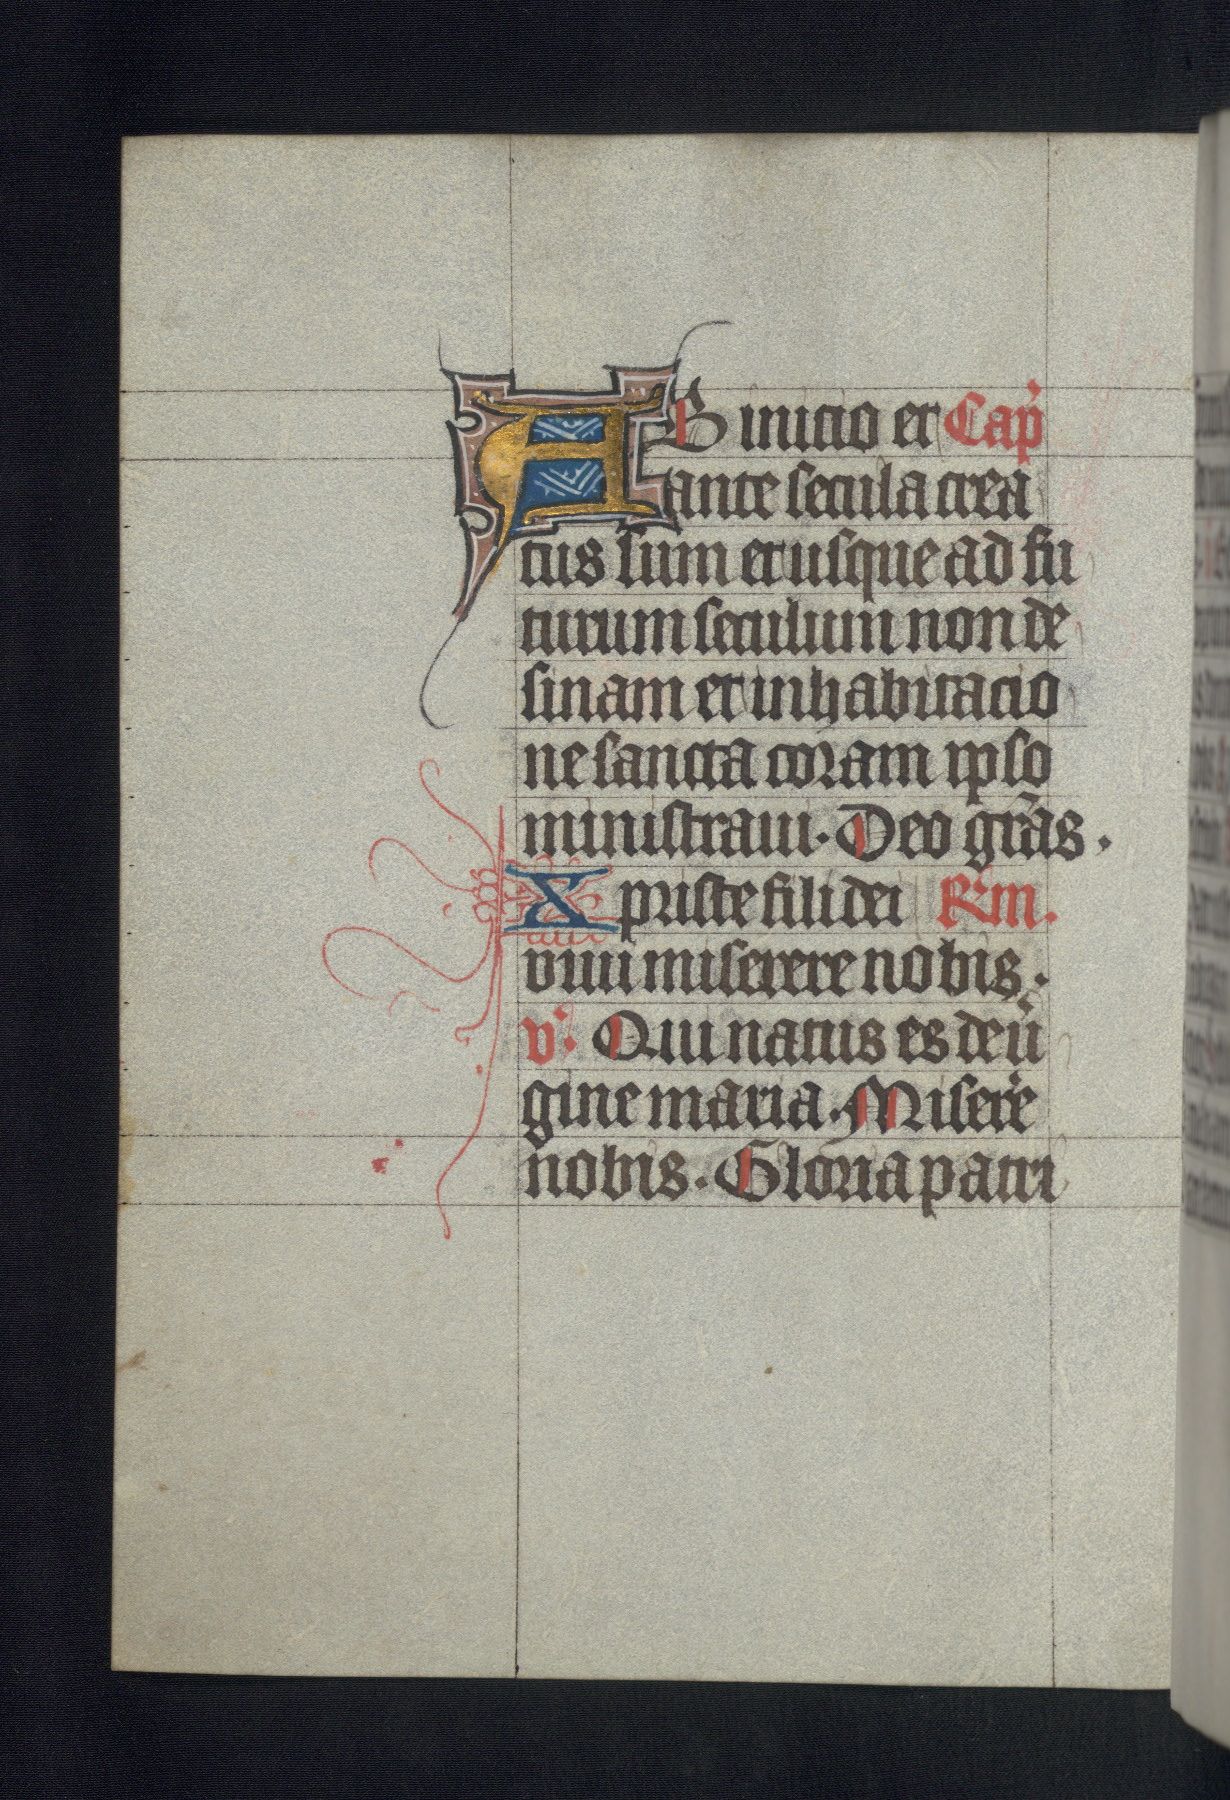 AB inicio et Cap̃
ante secula crea
tus sum et usque ad fu
turum seculum non de
sinam et in habitacio
ne sancta coram ipso
ministraui. Deo gr̃as.
Xpriste fili dei R̃m.
viui miserere nobis.
v̾. Qui natus es de ui᷑
gine maria. Misere᷑
nobis. Gloria patri